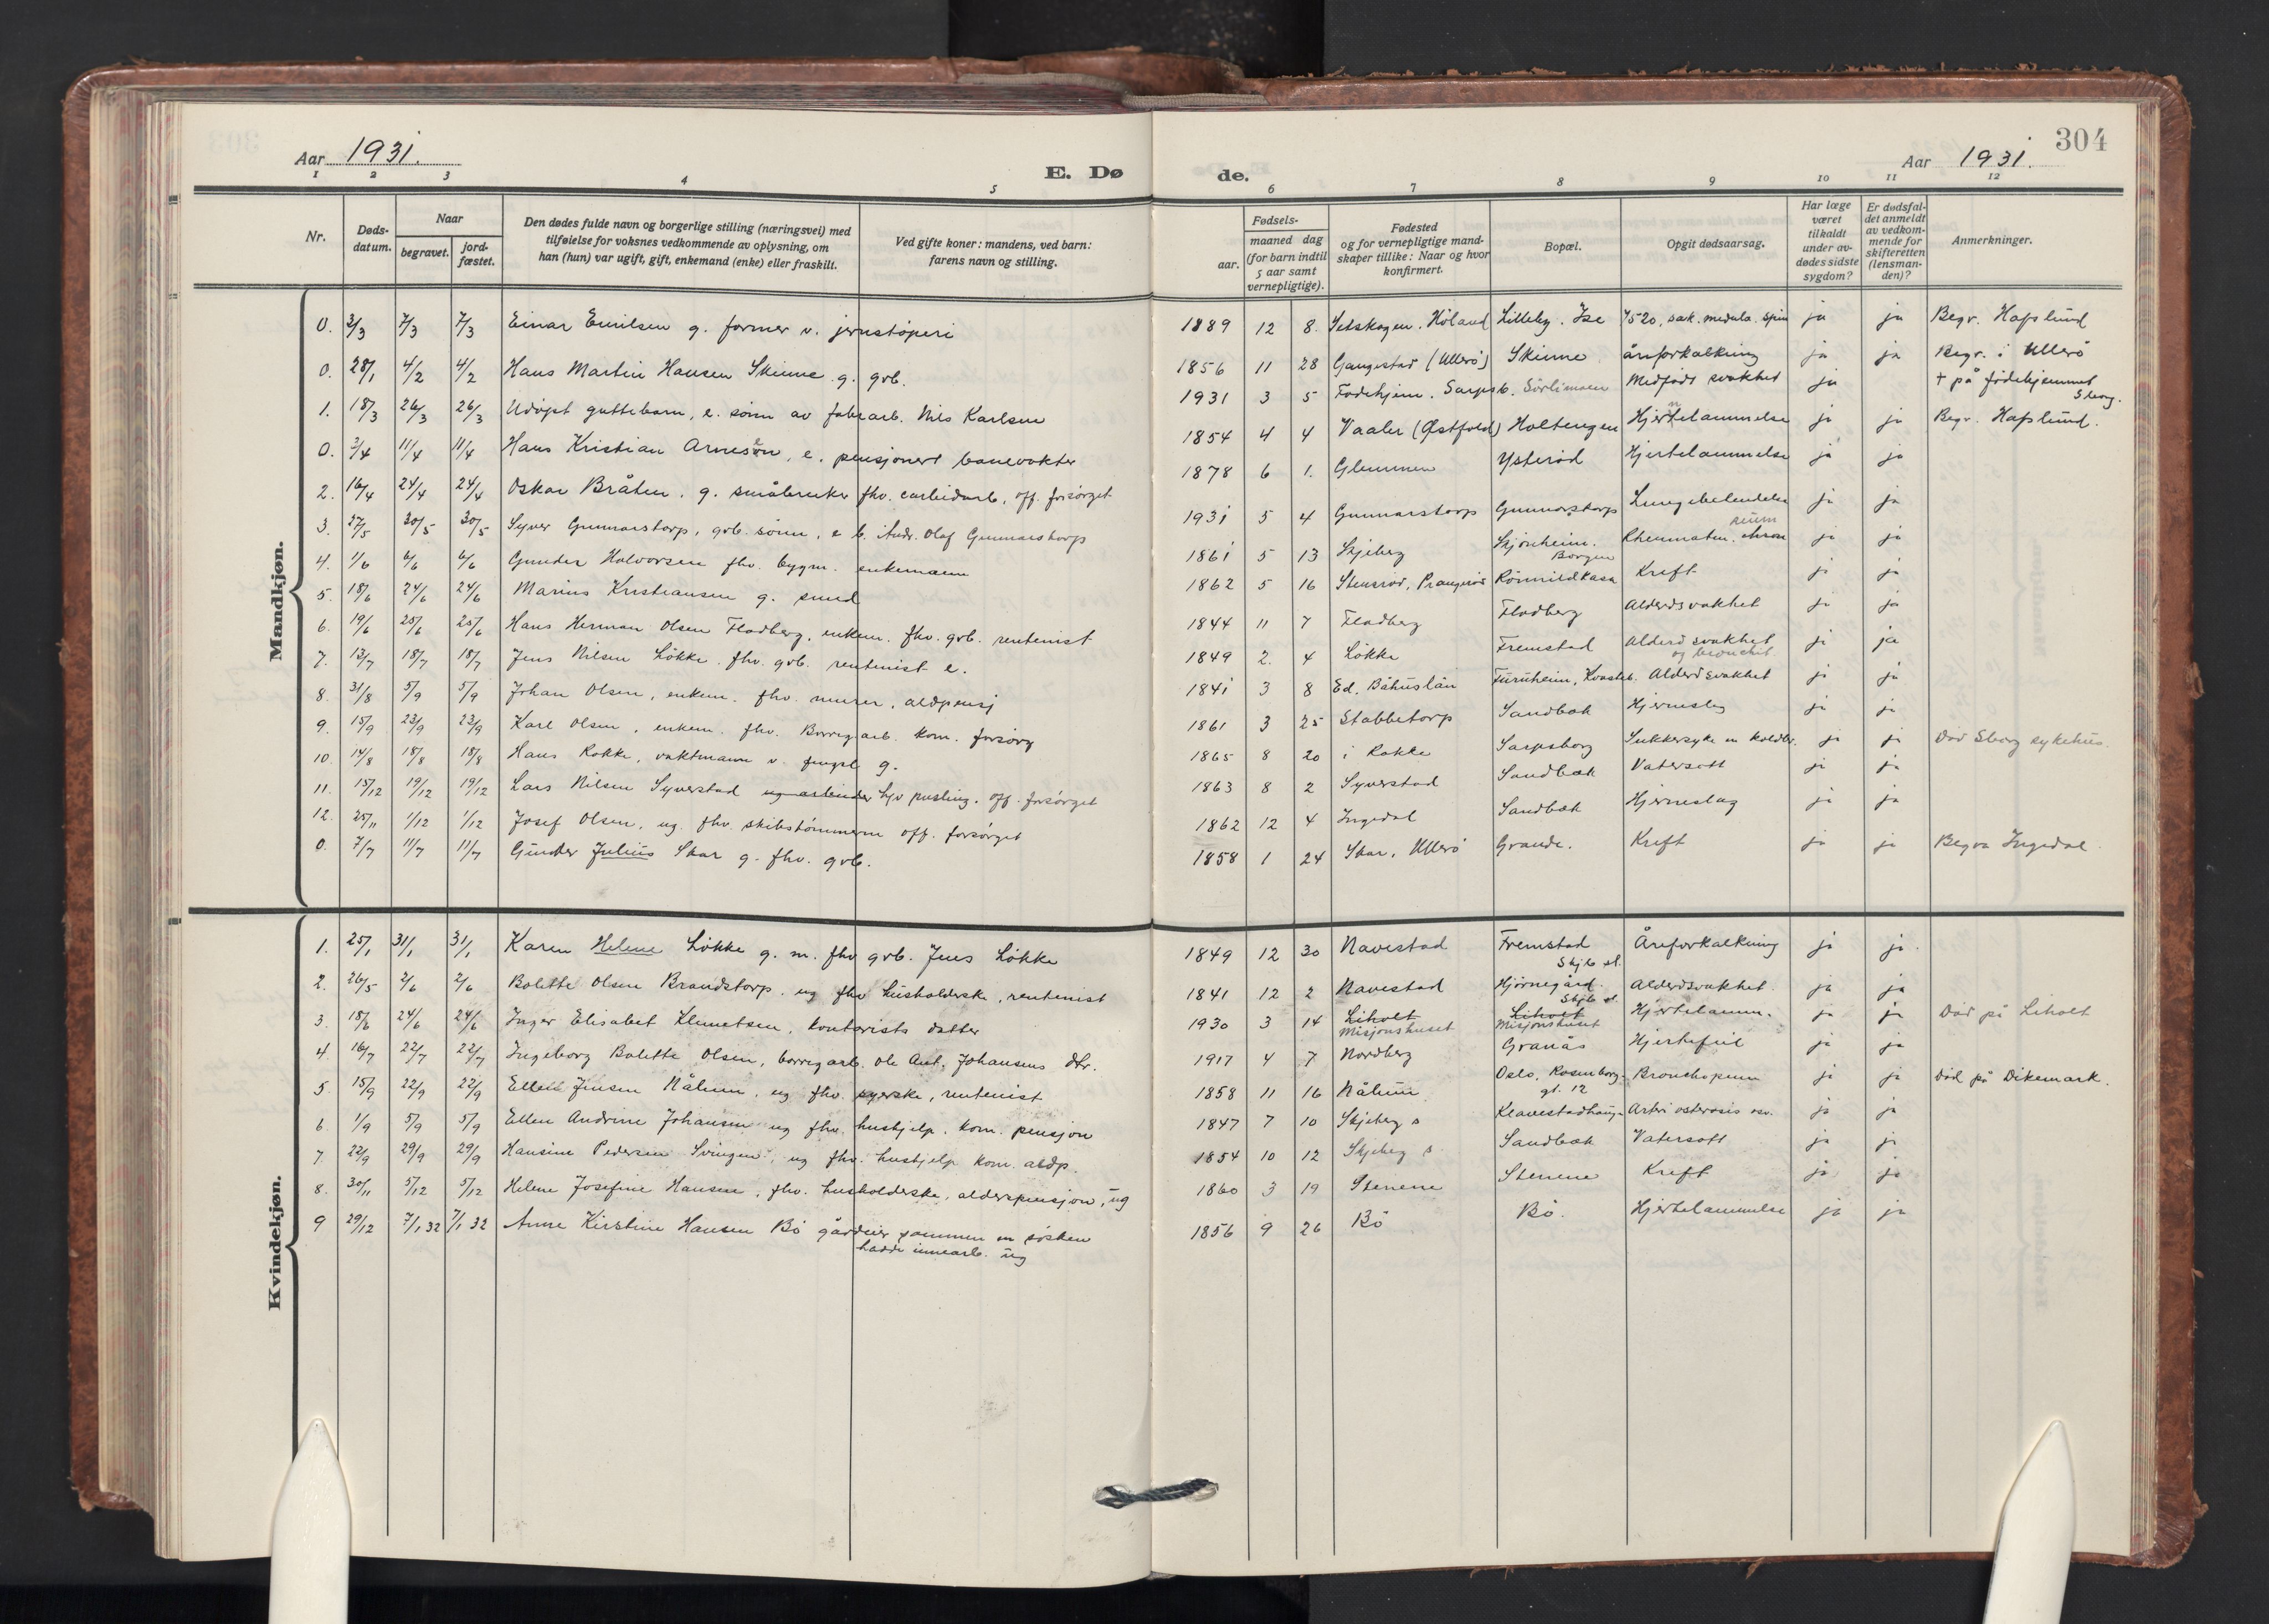 304
Aar 1931.
E. Dø
de.
Aar 1931.
1 2 3 4 5 6 7 8 9 10 11 12
Nr.
Døds-
datum.
Naar
begravet.
jord-
fæstet.
Den dødes fulde navn og borgerlige stilling (næringsvei) med
tilføielse for voksnes vedkommende av oplysning, om
han (hun) var ugift, gift, enkemand (enke) eller fraskilt.
Ved gifte koner: mandens, ved barn:
farens navn og stilling.
Fødsels-
aar.
maaned dag
(for barn indtil
5 aar samt
vernepligtige).
Fødested
og for vernepligtige mand-
skaper tillike: Naar og hvor
konfirmert.
Bopæl.
Opgit dødsaarsag.
Har læge
været
tilkaldt
under av-
dødes sidste
sygdom?
Er dødsfal-
det anmeldt
av vedkom-
mende for
skifteretten
(lensman-
den)?
Anmerkninger.
Mandkjøn.
0. 3/3 7/3 7/3 Einar Emilsen g. former v. jernstøperi 1889 12 8. Setskogen. Høland Lilleby. Ise ja ja Begr. Hafslund
0. 28/1 4/2 4/2 Hans Martin Hansen Skinne g. gvb. 1856 11 28 Gangestad (Ullerø) Skinne åreforkalkning ja ja Begr. i Ullerø
1. 18/3 26/3 26/3 Udøpt guttebarn, e. sønn av fabrarb. Nils Karlsen 1931 3 5 Fødehjem. Sarpsb. Sørlimoen Medfødt svakhet ja + på fødehjemmet
Sborg.
0. 3/4 11/4 11/4 Hans Kristian Arnesen, e. pensjonert banevokter 1854 4 4 Vaaler (Østfold) Holtengen Hjertelammelse ja ja Begr. Hafslund.
2. 16/4 24/4 24/4 Oskar Bråten. g. småbruker fhv. carbidarb, off. forsørget 1878 6 1. Glemmen Ysterød Hjertelammelse ja ja
3. 27/5 30/5 30/5 Syver Gunnarstorp, gvb. sønn, e b. Andr. Olaf Gunnarstorp 1931 5 4 Gunnarstorp Gunnarstorp Lungebetendelse ja ja
4. 1/6 6/6 6/6 Gunder Halvorsen fhv. bygm. enkemann 1861 5 13 Skjeberg Skjønheim.
Borgen Rheumatm. chron ja ja
5. 18/6 24/6 24/6 Marius Kristiansen g. smed 1862 5 16 Stensrød, Prangerød Rømmildkasa Kreft ja ja
6. 19/6 25/6 25/6 Hans Herman Olsen Flodberg, enkem. fhv. gvb. rentenist 1844 11 7 Flodberg Flodberg Alderdsvakhet ja ja
7. 13/7 18/7 18/7 Jens Nilsen Løkke. fhv. gvb. rentenist e. 1849 2. 4 Løkke Fremstad Alderdsvakhet
og bronchit ja ja
8. 31/8 5/9 5/9 Johan Olsen, enkem. fhv. murer, aldpensj 1841 3 8 Ed. Båhuslän Furuheim, Kvasteb. Alderdsvakhet ja ja
9. 15/9 23/9 23/9 Karl Olsen, enkem. fhv. Borregarb. kom. forsørg 1861 3 25 Stabbetorp Sandbak Hjerneslag ja ja
10. 14/8 18/8 18/8 Hans Rokke, vaktmann v. fengsl g. 1865 8 20 i Rokke Sarpsborg Sukkersyke m koldbr. ja ja Død Sborg sykehus.
11. 15/12 19/12 19/12 Lars Nilsen Syverstad ug arbeider fhv pusling. off. forsørget 1863 8 2 Syverstad Sandbæk Vatersott ja ja
12. 25/11 1/12 1/12 Josef Olsen, ug. fhv. skibstømmerm off. forsørget 1862 12 4 Ingedal Sandbæk Hjerneslag ja ja
0. 7/7 11/7 11/7 Gunder Julius Skar g. fhv. gvb. 1858 1 24 Skar, Ullerø Grande. Kreft ja ja Begra Ingedal.
Kvindekjøn.
1. 25/1 31/1 31/1 Karen Helene Løkke g. m. fhv gvb. Jens Løkke 1849 12 30 Navestad Fremstad
Skjb st. Åreforkalkning ja ja.
2. 26/5 2/6 2/6 Bolette Olsen Brandstorp. ug fhv husholderske, rentenist 1841 12 2 Navestad Hjørnegård.
Skjb st. Alderdsvakhet. ja ja
3. 18/6 24/6 24/6 Inger Elisabet Klemetsen, kontorists datter 1930 3 14 Liholt
Misjonshuset Liholt
Misjonshuset Hjertelamm. ja ja Død på Liholt
4. 16/7 22/7 22/7 Ingeborg Bolette Olsen, borregarb. Ole Ant. Johansens dtr. 1917 4 7 Nordberg Granås Hjertefeil ja ja
5. 15/9 22/9 22/9 Ellen Jensen Nålum, ug fhv. syerske, rentenist 1858 11 16 Nålum Oslo, Rosenborg-
gt. 12 Bronchopneum ja ja død på Dikemark.
6. 1/9 5/9 5/9 Ellen Andrine Johansen ug fhv. hushjelp. kom. pensjon 1847 7 10 Skjeberg s Klavestadhaug- ja ja
7. 22/9 29/9 29/9 Hansine Pedersen Svingen, ug fhv. hushjelp kom. aldp. 1854 10 12 Skjeberg s. Sandbæk Vatersott ja ja
8. 30/11 5/12 5/12 Helene Josefine Hansen, fhv. husholderske, alderspensjon, ug 1860 3 19 Stenene Stenene Kreft ja ja
9 29/12 7/1 32 7/1 32 Anne Kirstine Hansen Bø gårdeier sammen m søsken
hadde innearb. ug 1856 9 26 Bø Bø. Hjertelammelse ja ja